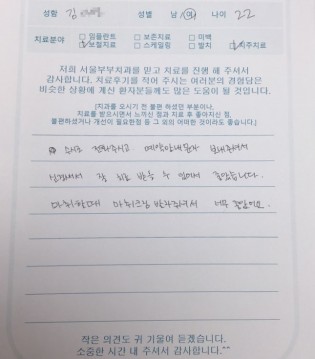 성함 김 성별 남 / 여 나이 22
치료분야 □ 임플란트 □ 보존치료 □ 미백
□ 보철치료 □ 스케일링 □ 발치 □ 치주치료
저희 서울부부치과를 믿고 치료를 진행 해 주셔서
감사합니다. 치료후기를 적어 주시는 여러분의 경험담은
비슷한 상황에 계신 환자분들께도 많은 도움이 될 것입니다.
[치과를 오시기 전 불편 하셨던 부분이나,
치료를 받으시면서 느끼신 점과 치료 후 좋아지신 점,
불편하셨거나 개선이 필요한점 등 그 외의 어떠한 것이라도 좋습니다.]
전화주시고 예약안내문자 보내주셔서
잘 치료 받을 수 있어서 좋았습니다.
마취할때 마취크림 발라주셔서 너무 좋았어요.
작은 의견도 귀 기울여 듣겠습니다.
소중한 시간 내 주셔서 감사합니다.^^